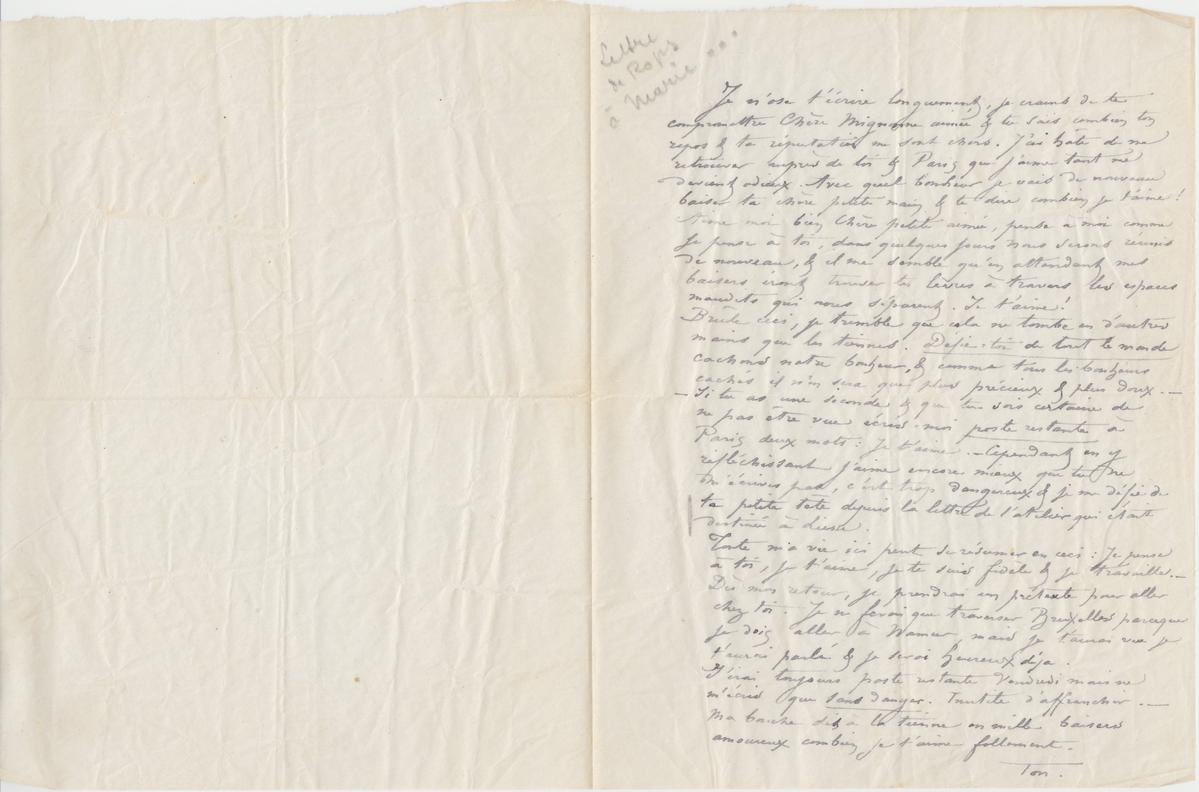 Lettre
de Rops
à Marie ...
Je n'ose t'écrire longuement, je crains de te
compromettre Chère Mignonne aimée & tu sais combien ton
repos & ta réputation me sont chers. J'ai hâte de me
retrouver auprès de toi & Paris que j'aime tant me
devient odieux. Avec quel bonheur je vais de nouveau
baiser ta chère petite main & te dire combien je t'aime !
Aime moi bien Chère petite aimée, pense à moi comme
je pense à toi, dans quelques jours nous serons réunis
de nouveau, & il me semble qu'en attendant mes
baisers iront trouver tes lèvres à travers les espaces
maudits qui nous séparent. Je t'aime !
Brûle ceci, je tremble que cela ne tombe en d'autres
mains que les tiennes. Défie-toi de tout le monde
cachons notre bonheur, & comme tous les bonheurs
cachés il n'en sera que plus précieux & plus doux. —
— Si tu as une seconde & que tu sois certaine de
ne pas être vue écris-moi poste restante à
Paris deux mots : Je t'aime. — Cependant en y
réfléchissant j'aime encore mieux que tu ne
m'écrives pas, c'est trop dangereux & je me défie de
ta petite tête depuis la lettre de l'atelier qui était
destinée à
Toute ma vie ici peut se résumer en ceci : Je pense
à toi, je t'aime, je te suis fidèle & je travaille. —
Dès mon retour, je prendrai un prétexte pour aller
chez toi. Je ne ferai que traverser Bruxelles parceque
je dois aller à Namur mais je t'aurai vue je
t'aurai parlé & je serai heureux déja.
J'irai toujours poste restante Vendredi mais ne
m'écris que sans danger. Inutile d'affranchir. —
Ma bouche dit à la tienne en mille baisers
amoureux combien je t'aime follement.
Ton.